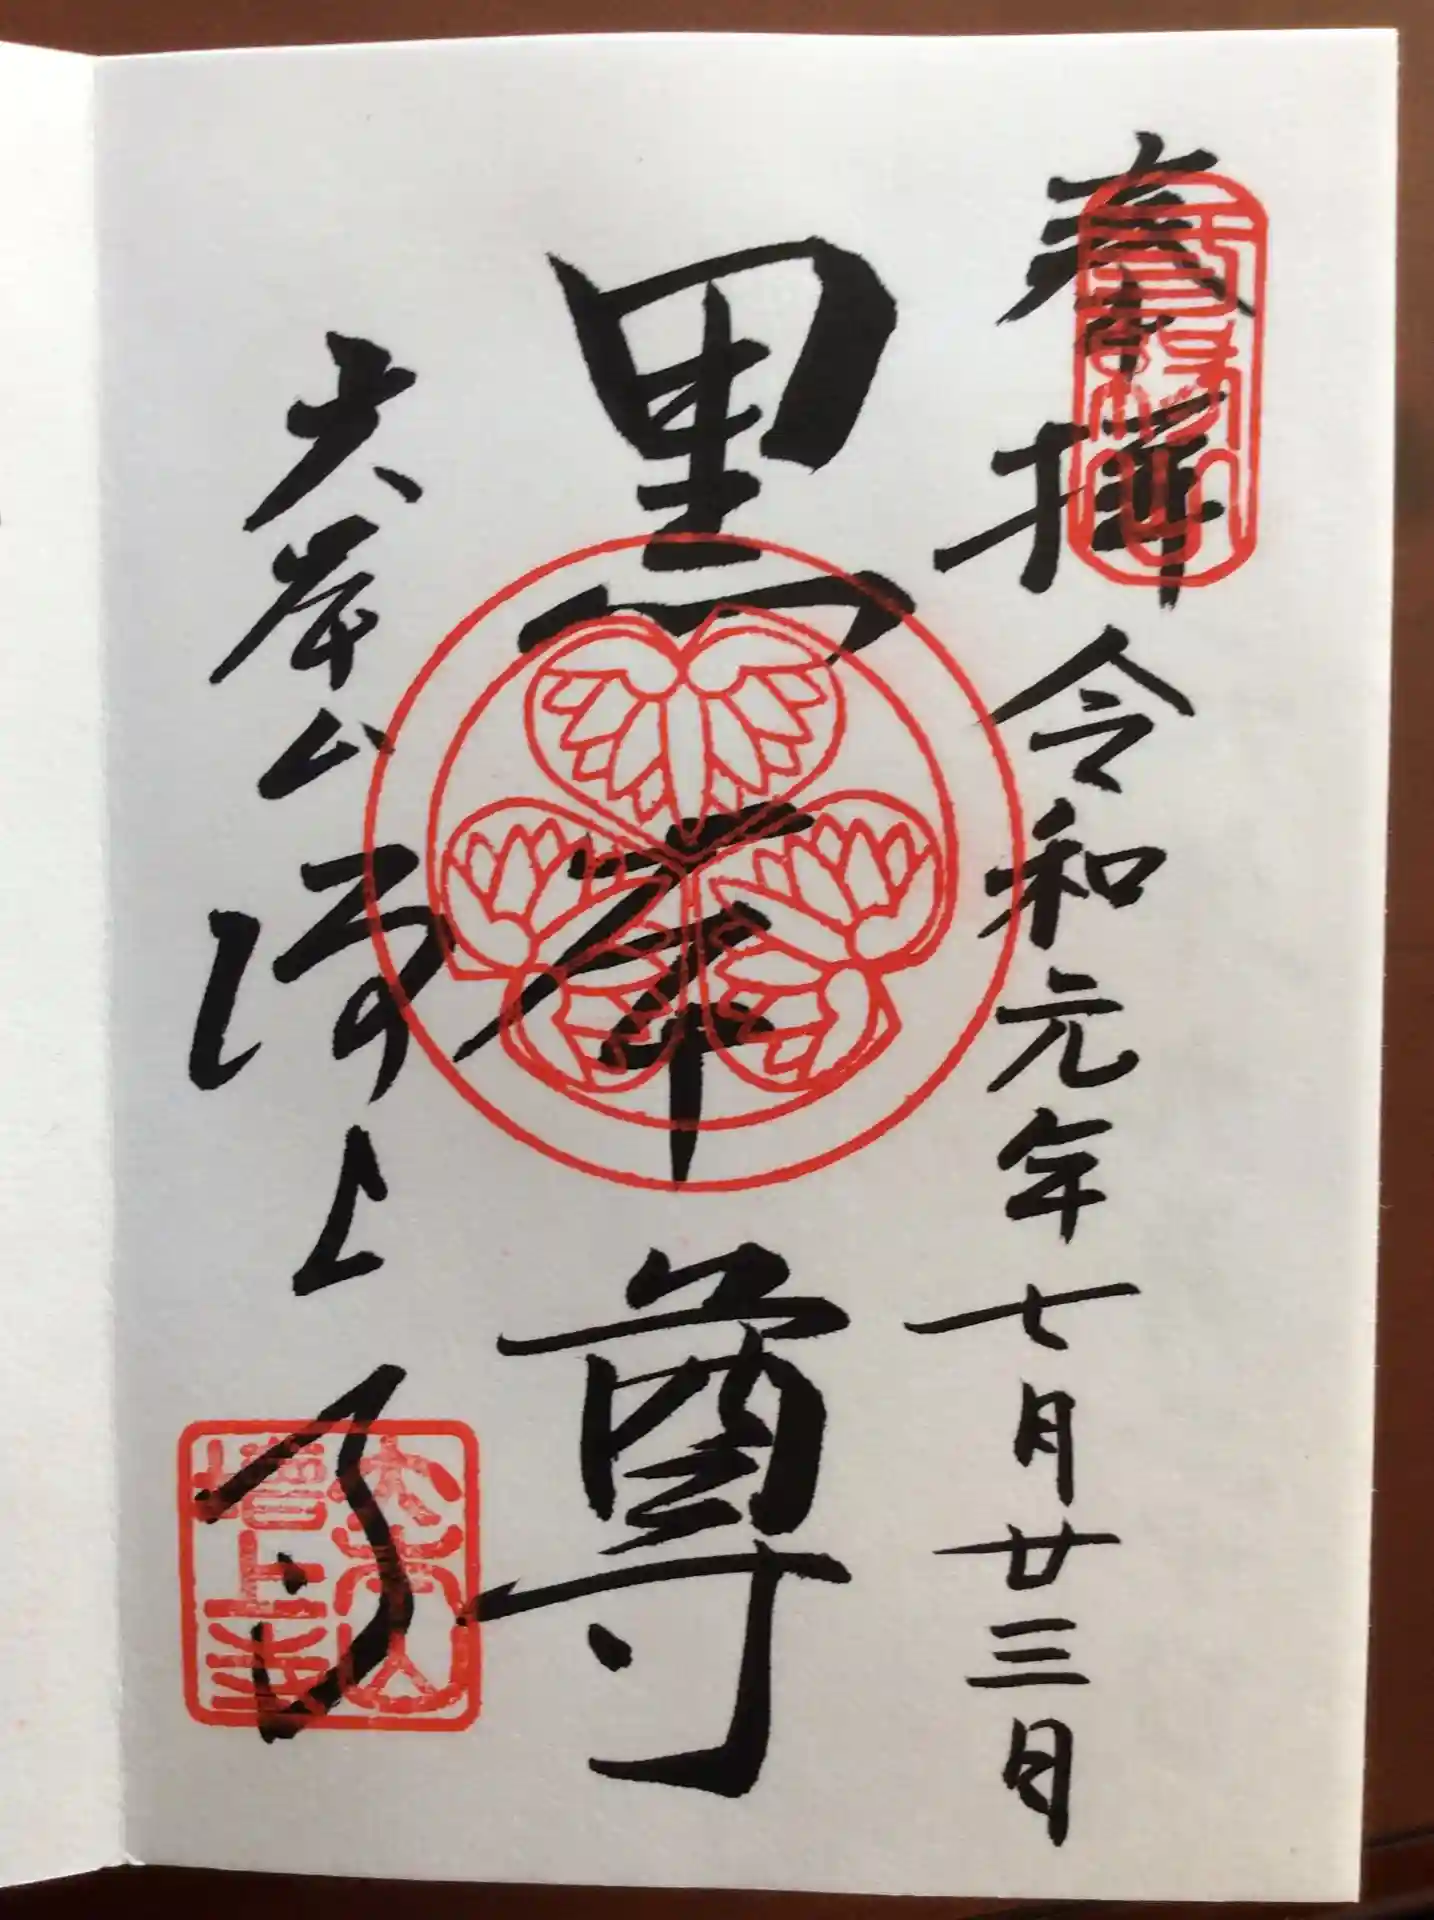 奉拝 令和元年七月廿三日
黒本尊
大本山増上寺
三縁山
大本山
増上寺